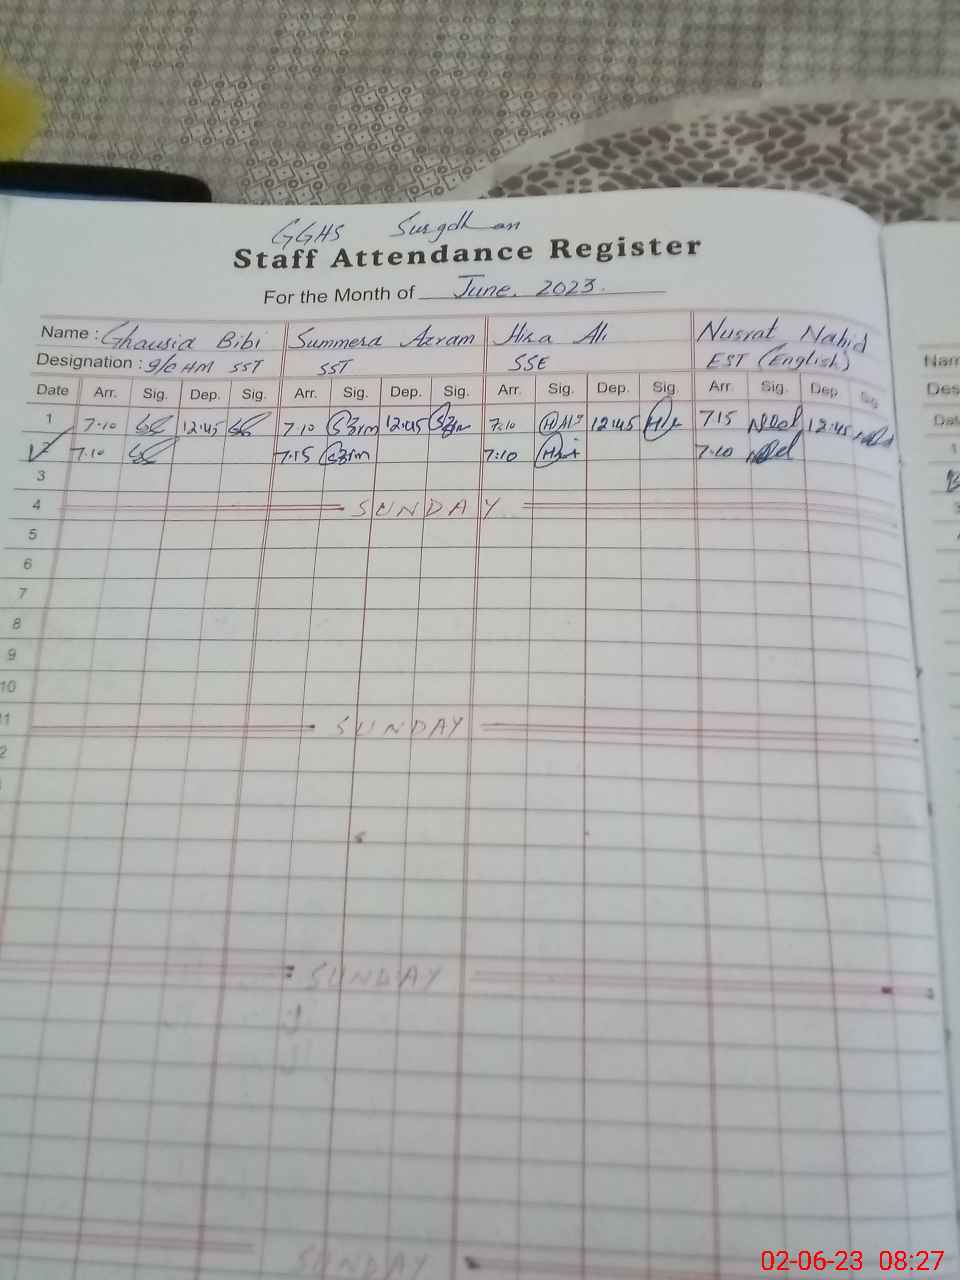 GGHS Surgdhan
Staff Attendance Register
For the Month of June. 2023.
Name : Ghausia Bibi Summera Azram Hira Ali Nusrat Nahid
Designation : I/C HM SST SST SSE EST (English)
Date Arr. Sig. Dep. Sig. Arr. Sig. Dep. Sig. Arr. Sig. Dep. Sig. Arr. Sig. Dep Sig
1 7-10 12:45 7-10 12:45 7:10 12:45 715 12:45
7.10 7.15 7:10 7-10
3
4 SUNDAY
5
6
7
8
9
10
11 SUNDAY
2
SUNDAY
SUNDAY
Nam
Des
Dat
02-06-23 08:27